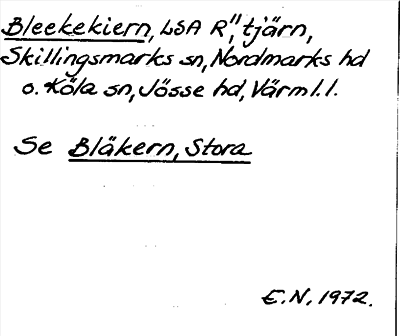 Bleekekiern, LSA R", tjärn,
Skillingsmarks sn, Nordmarks hd
o. Köla sn, Jösse hd, Värml. l.
Se Bläkern, Stora
E.N. 1972.